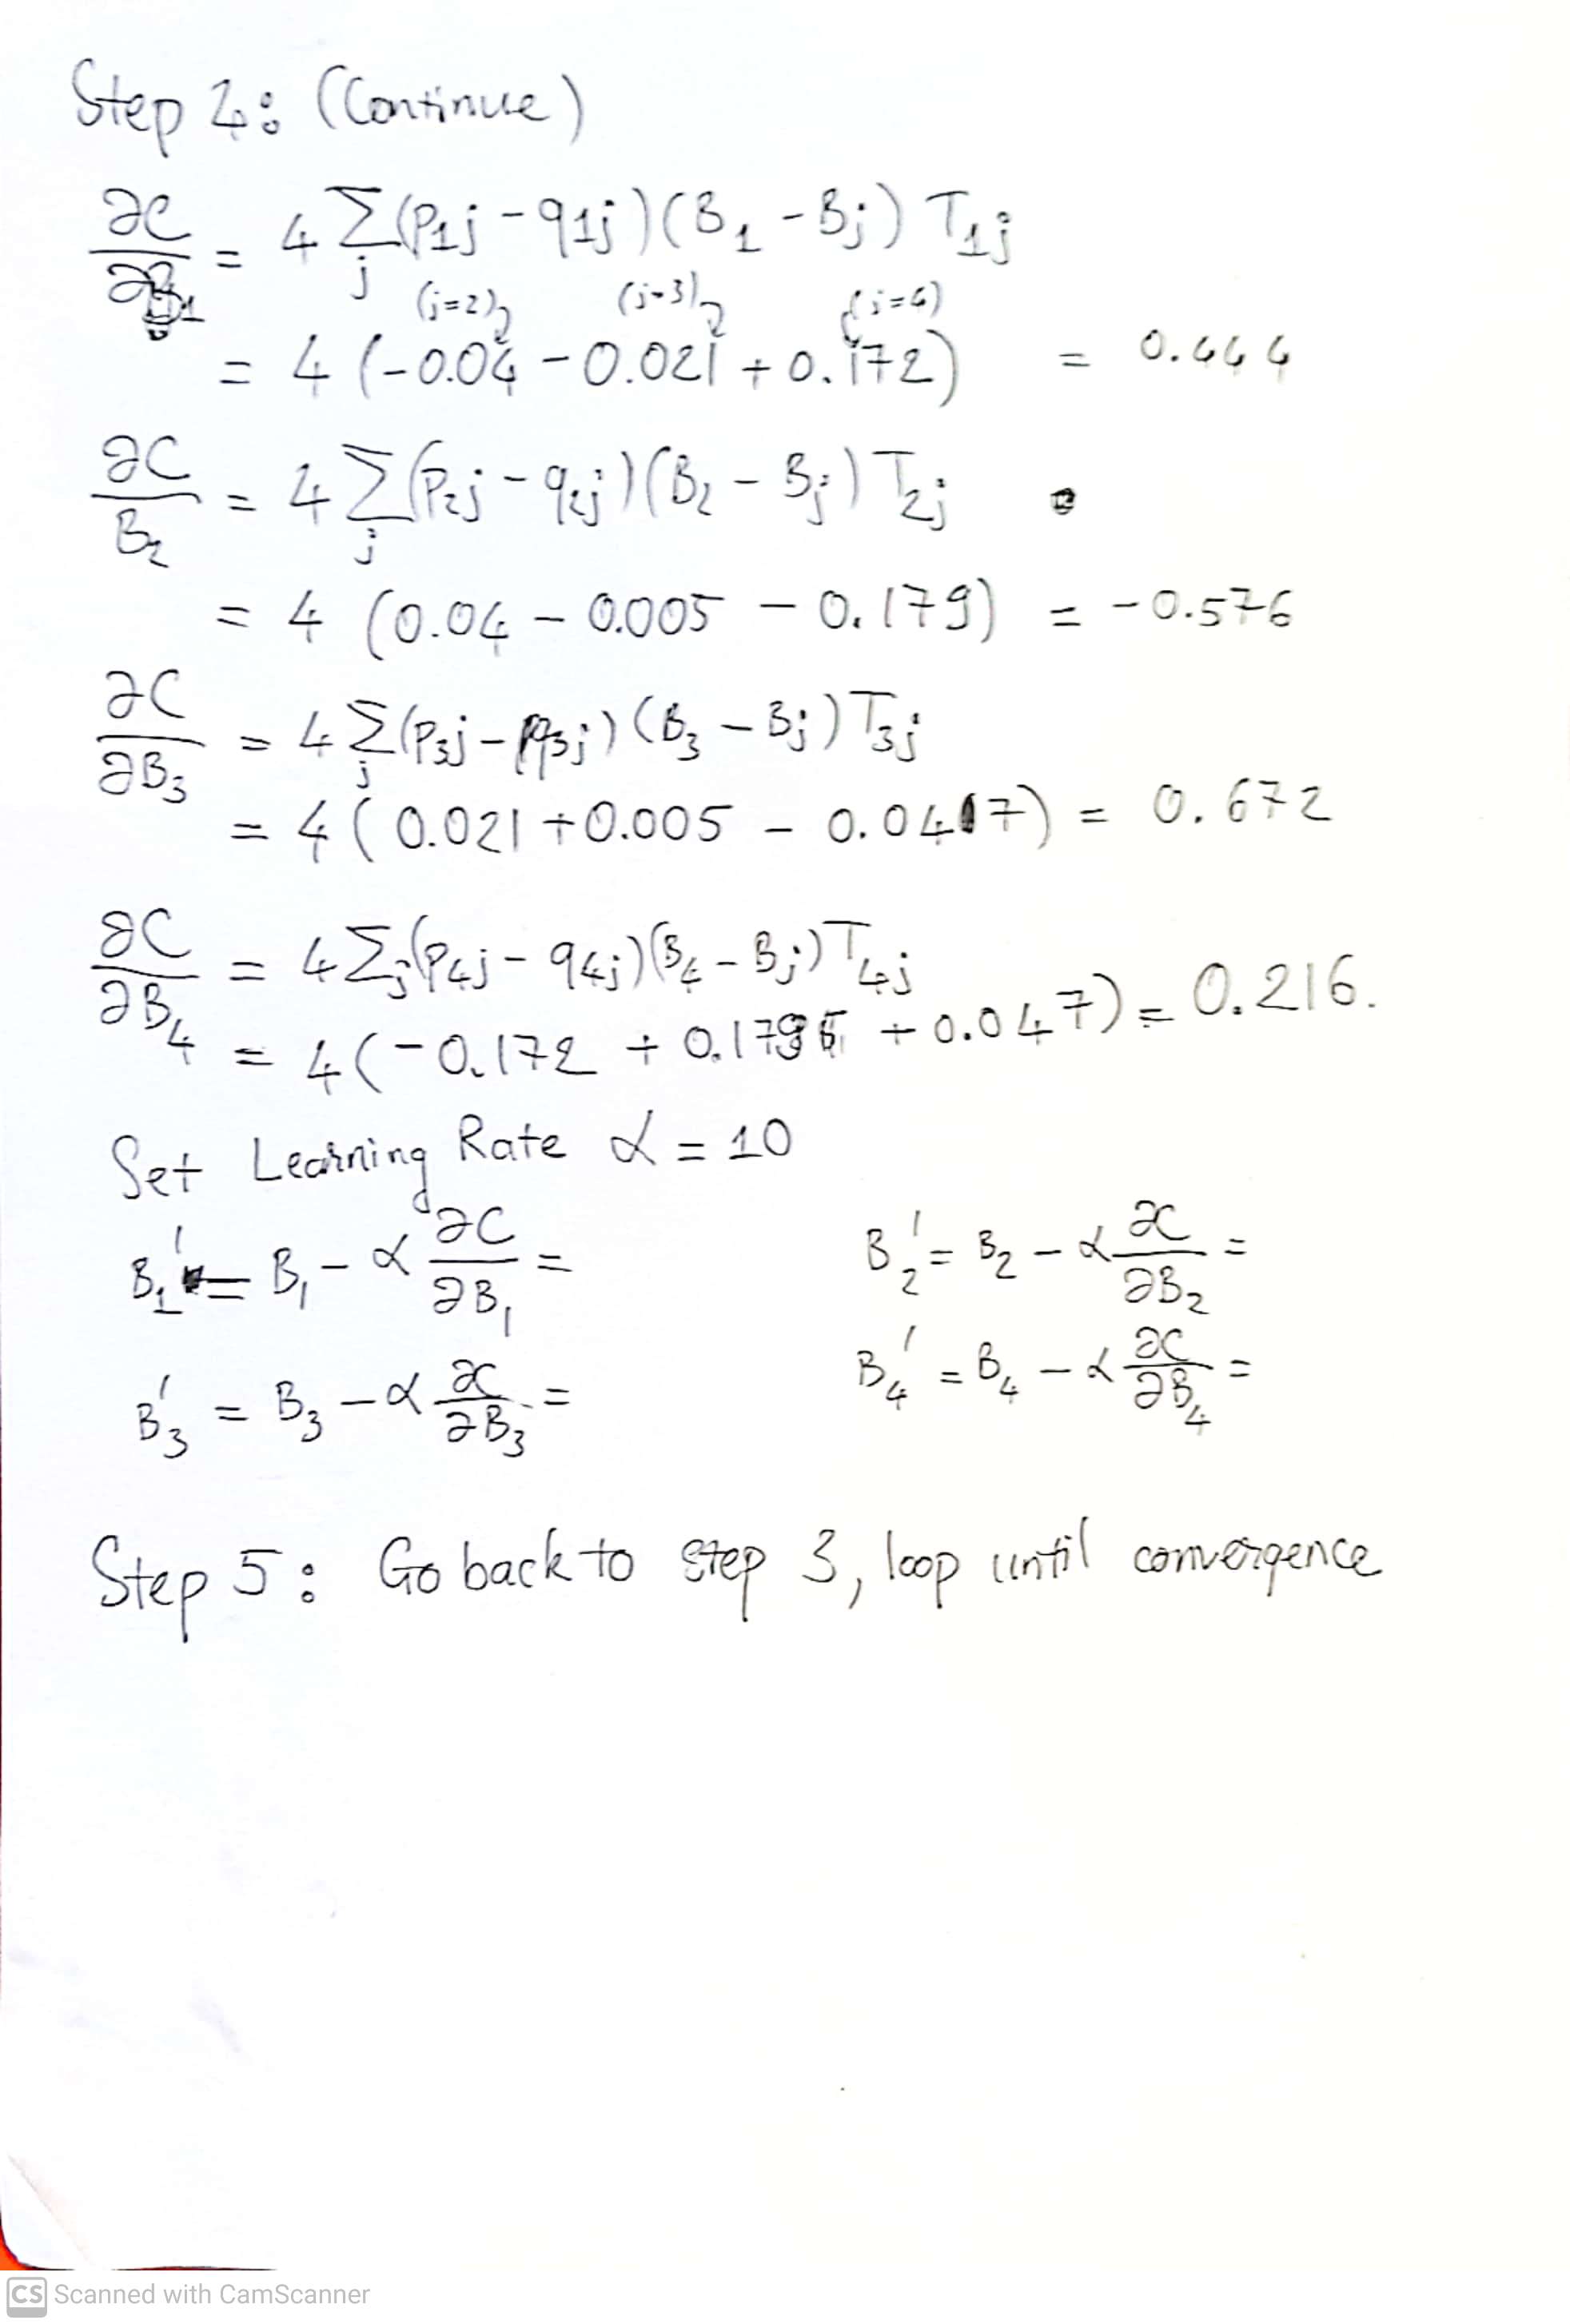 Step 4: (Continue)
∂C/∂B₁ = 4 Σⱼ (P₁ⱼ - q₁ⱼ)(B₁ - Bⱼ) T₁ⱼ
(j=2) (j=3) (j=4)
= 4 (-0.04 - 0.021 + 0.172) = 0.444
∂C/B₂ = 4 Σⱼ (P₂ⱼ - q₂ⱼ)(B₂ - Bⱼ) T₂ⱼ
= 4 (0.04 - 0.005 - 0.179) = -0.576
∂C/∂B₃ = 4 Σⱼ (P₃ⱼ - q₃ⱼ)(B₃ - Bⱼ) T₃ⱼ
= 4 (0.021 + 0.005 - 0.047) = 0.672
∂C/∂B₄ = 4 Σⱼ (P₄ⱼ - q₄ⱼ)(B₄ - Bⱼ) T₄ⱼ
= 4 (-0.172 + 0.179 + 0.047) = 0.216.
Set Learning Rate α = 10
B₁' = B₁ - α ∂C/∂B₁ = B₂' = B₂ - α ∂C/∂B₂ =
B₃' = B₃ - α ∂C/∂B₃ = B₄' = B₄ - α ∂C/∂B₄ =
Step 5: Go back to step 3, loop until convergence
CS Scanned with CamScanner